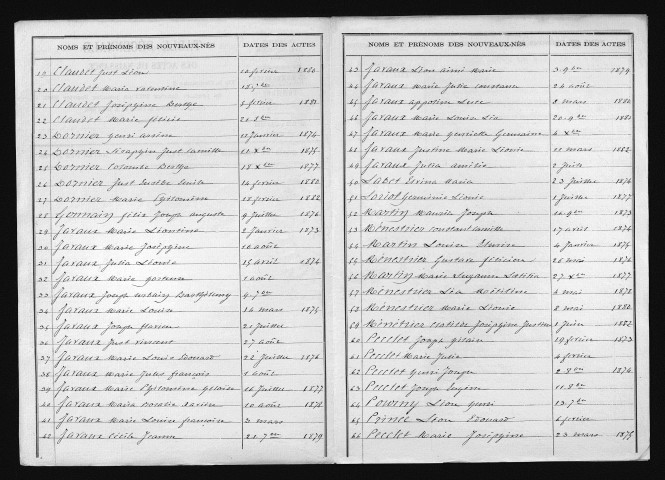 NOMS ET PRÉNOMS DES NOUVEAUX-NÉS DATES DES ACTES
19 Claudet Just Léon 12 février 1880
20 Claudet Marie valentine 18 7bre
21 Claudet Joséphine Berthe 5 février 1881
22 Claudet Marie félicie 21 8bre
23 Dornier henri 12 Janvier 1874
24 Dornier Just Camille 21 Xbre 1875
25 Dornier Colombe Berthe 18 Xbre 1877
26 Dornier Just Emile 14 février 1880
27 Dornier Marie Philomène 18 février 1882
28 Gonnain félix Joseph auguste 9 Juillet 1876
29 Javaux Marie Léontine 2 Janvier 1873
30 Javaux Marie Joséphine 10 août
31 Javaux Julia Léonie 15 avril 1874
32 Javaux Marie 1 août
33 Javaux Joseph urbain Barthélemy 9 7bre
34 Javaux Marie Louise 14 mars 1875
35 Javaux Joseph 21 Juillet
36 Javaux Just vincent 27 août
37 Javaux Marie Louis Edouard 22 Juillet 1876
38 Javaux Marie Jules françois 1 août
39 Javaux Marie Philomène 16 Juillet 1877
40 Javaux Maria 10 août 1878
41 Javaux Marie Louise 3 mars
42 Javaux Cécile Jeanne 21 7bre 1879
NOMS ET PRÉNOMS DES NOUVEAUX-NÉS DATES DES ACTES
43 Javaux Léon aimé Marie 3 9bre 1879
44 Javaux Marie Julie constance 24 août
45 Javaux appoline Luce 8 mars 1880
46 Javaux Marie Louise Léa 20 9bre 1881
47 Javaux Marie henriette Germaine 4 Xbre
48 Javaux Justine Marie Léonie 11 mars 1882
49 Javaux Julia amélie 2 Juin
50 Labet Maria 23 Juillet 1876
51 Loriot Léonie 1 Juillet 1877
52 Martin Maurice Joseph 16 9bre 1873
53 Ménestrier constant camille 17 avril 1874
54 Martin Louise 4 Janvier 1875
55 Ménestrier Gustave félicien 26 mai 1876
56 Martin Marie Suzanne 27 Xbre 1877
57 Ménestrier Léa 4 mai 1878
58 Ménestrier Marie Léonie 8 mai 1880
59 Ménétrier Joséphine Justine 1 Juin 1882
60 Peclet Joseph 19 février 1873
61 Peclet Marie Julie 4 février
62 Peclet henri Joseph 2 8bre 1874
63 Peclet Joseph Eugène 11 8bre
64 Léon henri 13 7bre
65 Prince Léon Edouard 6 février
66 Peclet Marie Joséphine 23 mars 1875